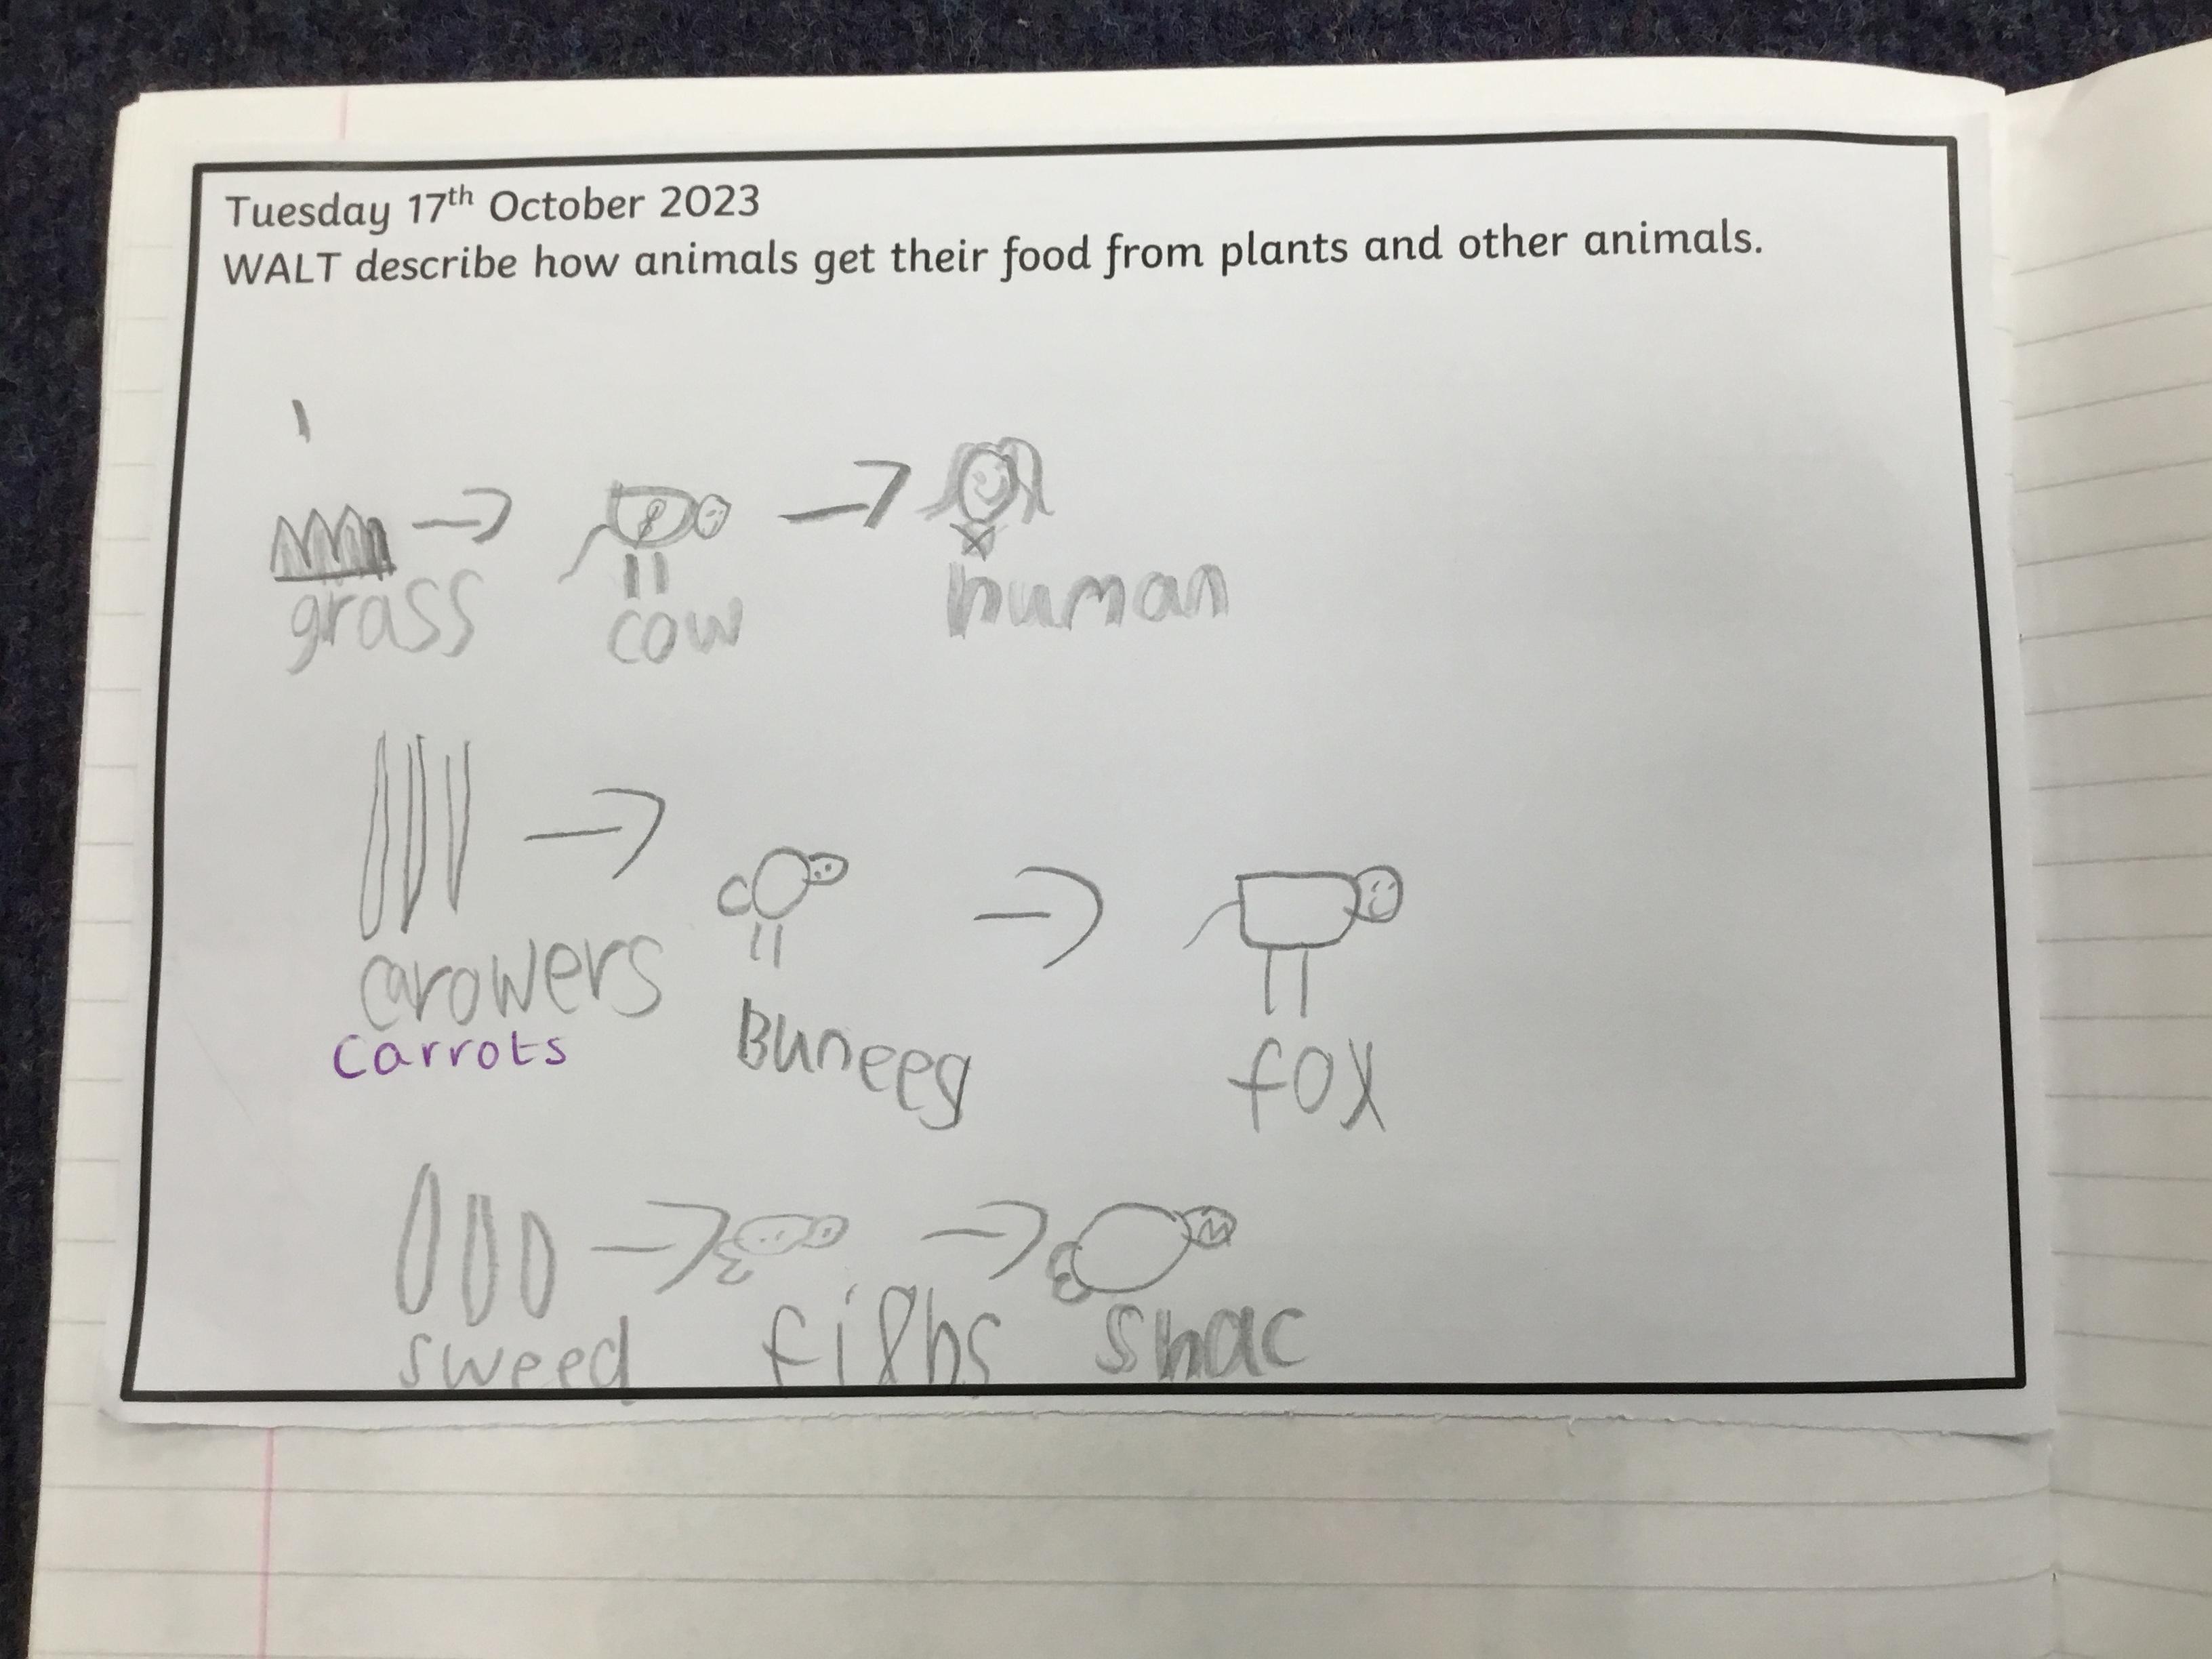 Tuesday 17th October 2023
WALT describe how animals get their food from plants and other animals.
grass cow human
carowers Buneeg fox
Carrots
sweed filhs shac